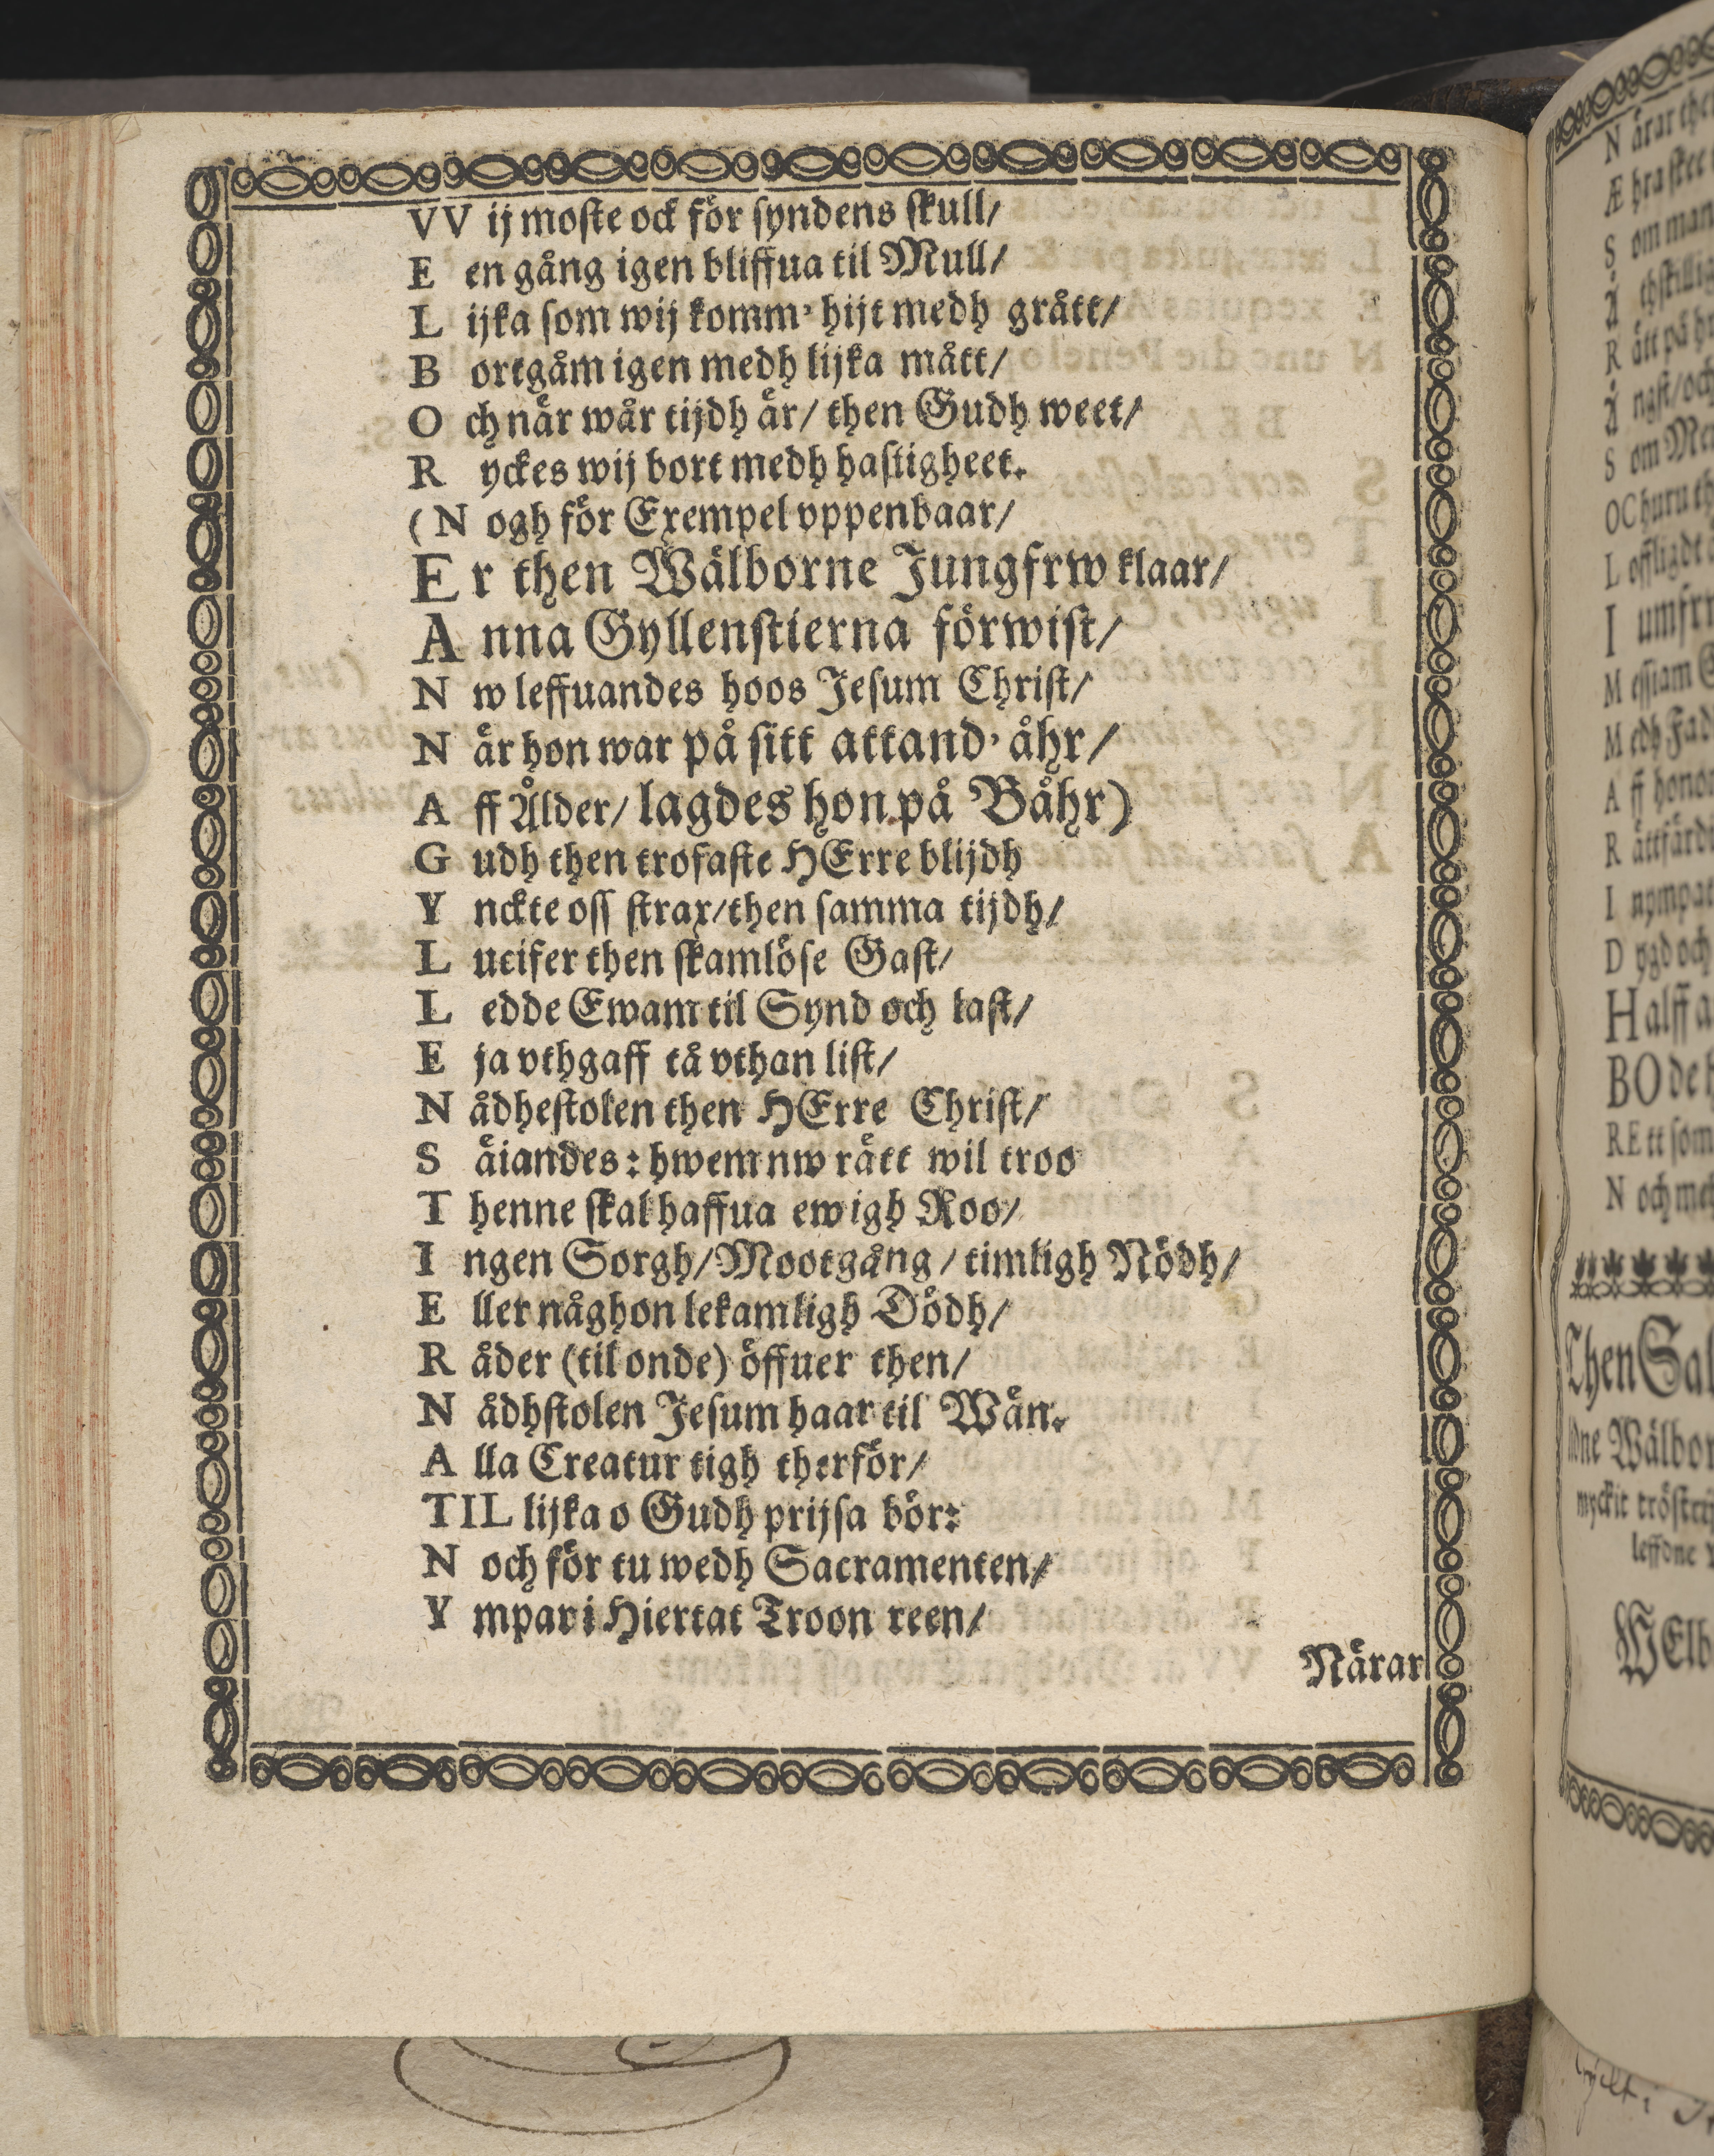 VV ij moste ock för syndens skull/
E en gång igen bliffua til Mull/
L ijka som wij komm' hijt medh grått/
B ortgåm igen medh lijka mått/
O ch när wår tijdh är/ then Gudh weet/
R yckes wij bort medh hastigheet.
(N ogh för Exempel vppenbaar/
E r then Wälborne Jungfrw klaar/
A nna Gyllenstierna förwist/
N w leffuandes hoos Jesum Christ/
N är hon war på sitt attand' åhr/
A ff Ålder/ lagdes hon på Båhr)
G udh then trofaste HErre blijdh
Y nckte oss strax/then samma tijdh/
L ucifer then skamlöse Gast/
L edde Ewam til Synd och last/
E ja vthgaff tå vthan list/
N ådhestolen then HErre Christ/
S äiandes: hwem nw rätt wil troo
T henne skal haffua ewigh Roo/
I ngen Sorgh/Mootgång/timligh Nödh/
E ller någhon lekamligh Dödh/
R åder (til onde) öffuer then/
N ådhstolen Jesum haar til Wän.
A lla Creatur tigh therför/
TIL lijka o Gudh prijsa bör:
N och för tu wedh Sacramenten/
Y mpar i Hiertat Troon reen/
Närar
N ärar
Æ hra
S om man
R ätt på
Å ngst/och
S om
OC huru
L offligdt
I umfr
M essiam
M edh Fad
A ff honom
R ättfärd
I nympat
D ygd och
H alff
BO de
RE tt som
N och
Then
Wälbor
myckit
WElb